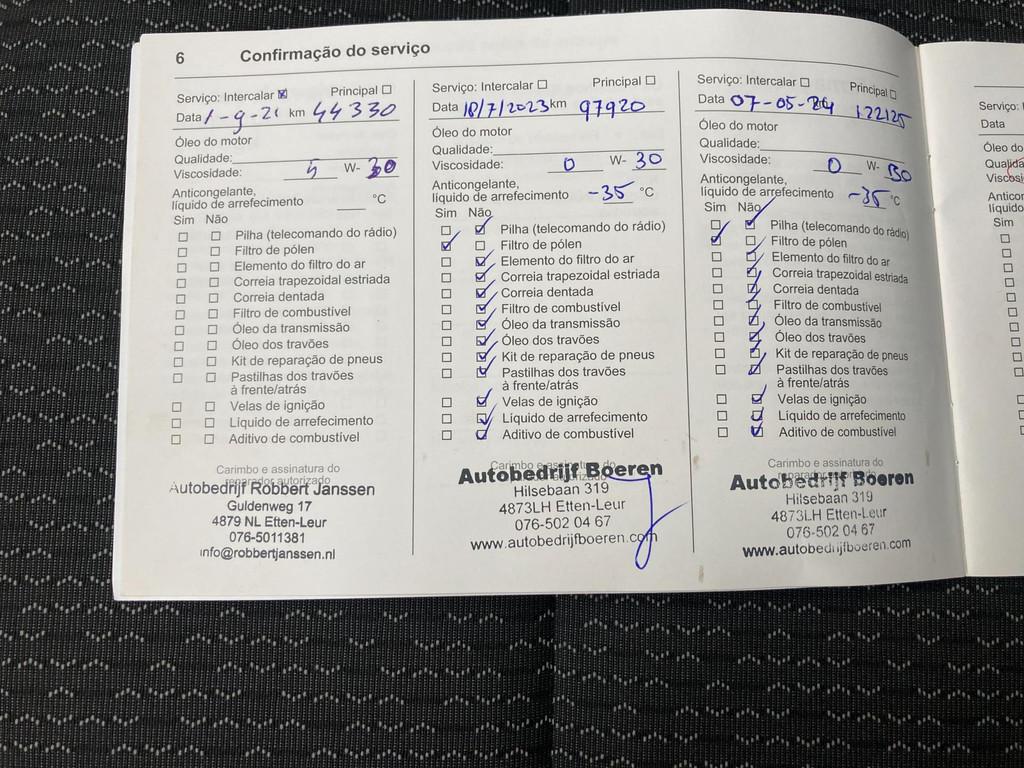 6 Confirmação do serviço
Serviço: Intercalar Principal
Data 1-9-21 km 44330
Óleo do motor
Qualidade:
Viscosidade: 5 W- 30
Anticongelante,
líquido de arrefecimento °C
Sim Não
Pilha (telecomando do rádio)
Filtro de pólen
Elemento do filtro do ar
Correia trapezoidal estriada
Correia dentada
Filtro de combustível
Óleo da transmissão
Óleo dos travões
Kit de reparação de pneus
Pastilhas dos travões
à frente/atrás
Velas de ignição
Líquido de arrefecimento
Aditivo de combustível
Carimbo e assinatura do
reparador autorizado
Autobedrijf Robbert Janssen
Guldenweg 17
4879 NL Etten-Leur
076-5011381
info@robbertjanssen.nl
Serviço: Intercalar Principal
Data 18/7/2023 km 97920
Óleo do motor
Qualidade:
Viscosidade: 0 W- 30
Anticongelante,
líquido de arrefecimento -35 °C
Sim Não
Pilha (telecomando do rádio)
Filtro de pólen
Elemento do filtro do ar
Correia trapezoidal estriada
Correia dentada
Filtro de combustível
Óleo da transmissão
Óleo dos travões
Kit de reparação de pneus
Pastilhas dos travões
à frente/atrás
Velas de ignição
Líquido de arrefecimento
Aditivo de combustível
Carimbo e assinatura do
Autobedrijf Boeren
Hilsebaan 319
4873LH Etten-Leur
076-502 04 67
www.autobedrijfboeren.com
Serviço: Intercalar Principal
Data 07-05-24 122125
Óleo do motor
Qualidade:
Viscosidade: 0 W- 30
Anticongelante,
líquido de arrefecimento -35 °C
Sim Não
Pilha (telecomando do rádio)
Filtro de pólen
Elemento do filtro do ar
Correia trapezoidal estriada
Correia dentada
Filtro de combustível
Óleo da transmissão
Óleo dos travões
Kit de reparação de pneus
Pastilhas dos travões
à frente/atrás
Velas de ignição
Líquido de arrefecimento
Aditivo de combustível
Carimbo e assinatura do
Autobedrijf Boeren
Hilsebaan 319
4873LH Etten-Leur
076-502 04 67
www.autobedrijfboeren.com
Serviço:
Data
Óleo do
Qualida
Viscosi
Anticon
líquido
Sim